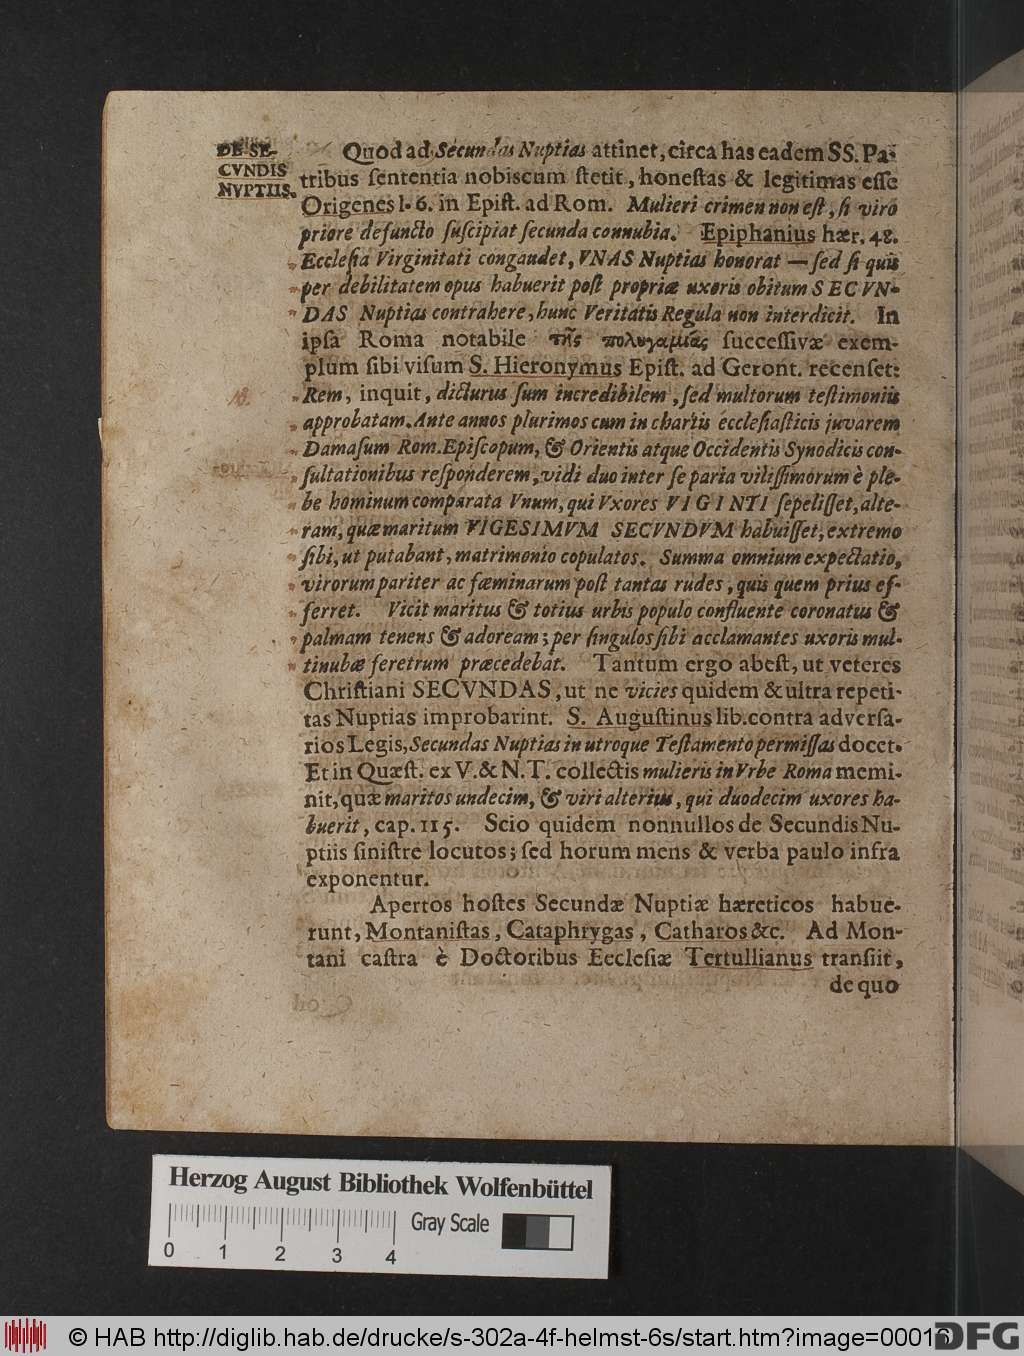 DE SE-
CVNDIS
NVPTIIS.
Quod ad Secundas Nuptias attinet, circa has eadem SS. Pa-
tribus ſententia nobiscum ſtetit, honeſtas & legitimas eſſe
Origenes l. 6. in Epiſt. ad Rom. Mulieri crimen non eſt, ſi viro
priore defuncto ſuſcipiat ſecunda connubia. Epiphanius hær. 48.
„ Eccleſia Virginitati congaudet, VNAS Nuptias honorat — ſed ſi quis
„ per debilitatem opus habuerit poſt propriæ uxoris obitum SECVN-
„ DAS Nuptias contrahere, hunc Veritatis Regula non interdicit. In
ipſa Roma notabile τῆς πολυγαμίας ſucceſſivæ exem-
plum ſibi viſum S. Hieronymus Epiſt. ad Geront. recenſet:
„ Rem, inquit, dicturus ſum incredibilem, ſed multorum teſtimoniis
„ approbatam. Ante annos plurimos cum in chartis eccleſiaſticis juvarem
„ Damaſum Rom. Epiſcopum, & Orientis atque Occidentis Synodicis con-
„ ſultationibus reſponderem, vidi duo inter ſe paria viliſſimorum è ple-
„ be hominum comparata Vnum, qui Vxores VIGINTI ſepeliſſet, alte-
„ ram, quæ maritum VIGESIMVM SECVNDVM habuiſſet, extremo
„ ſibi, ut putabant, matrimonio copulatos. Summa omnium expectatio,
„ virorum pariter ac fæminarum poſt tantas rudes, quis quem prius ef-
„ ferret. Vicit maritus & totius urbis populo confluente coronatus &
„ palmam tenens & adoream; per ſingulos ſibi acclamantes uxoris mul-
„ tinubæ feretrum præcedebat. Tantum ergo abeſt, ut veteres
Chriſtiani SECVNDAS, ut ne vicies quidem & ultra repeti-
tas Nuptias improbarint. S. Auguſtinus lib. contra adverſa-
rios Legis, Secundas Nuptias in utroque Teſtamento permiſſas docet.
Et in Quæſt. ex V. & N. T. collectis mulieris in Vrbe Roma memi-
nit, quæ maritos undecim, & viri alterius, qui duodecim uxores ha-
buerit, cap. 115. Scio quidem nonnullos de Secundis Nu-
ptiis ſiniſtre locutos; ſed horum mens & verba paulo infra
exponentur.
Apertos hoſtes Secundæ Nuptiæ hæreticos habue-
runt, Montaniſtas, Cataphrygas, Catharos &c. Ad Mon-
tani caſtra è Doctoribus Eccleſiæ Tertullianus tranſiit,
de quo
Herzog August Bibliothek Wolfenbüttel
Gray Scale
0 1 2 3 4
© HAB http://diglib.hab.de/drucke/s-302a-4f-helmst-6s/start.htm?image=00016
DFG